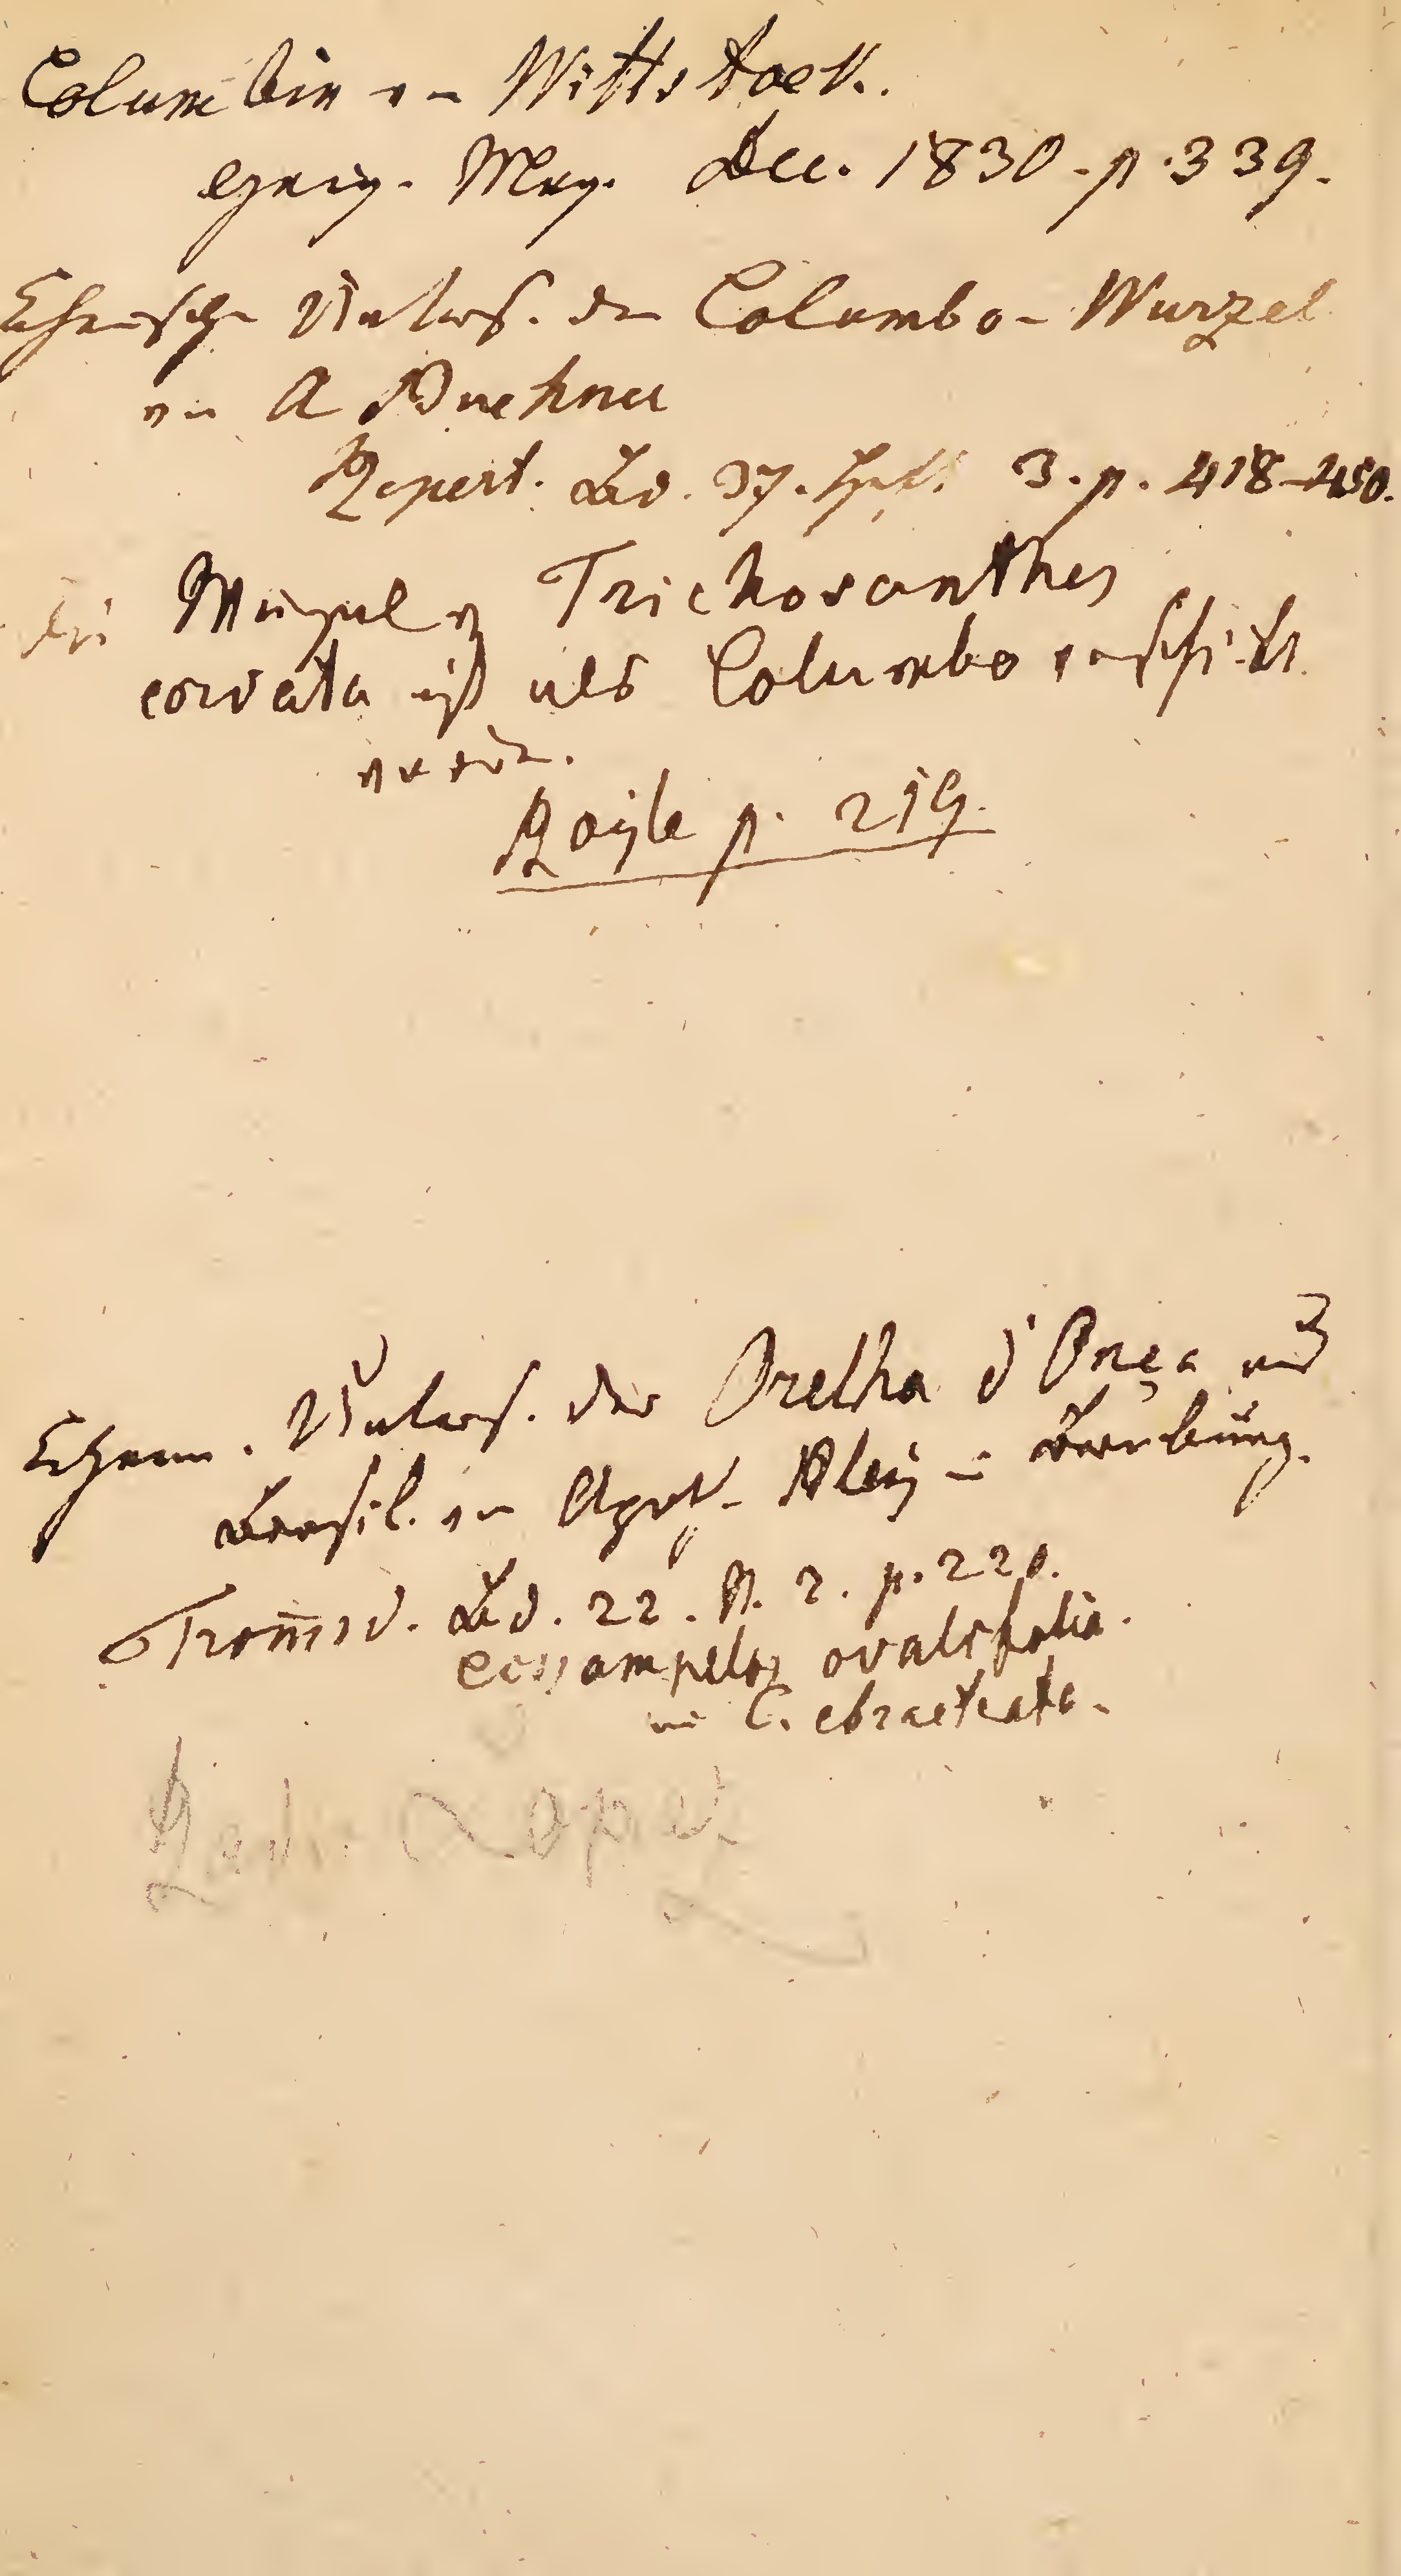 Columbin von Wittstock.
Geig. Mag. Dec. 1830. p. 339.
Chemische Unters. der Columbo-Wurzel
von A Buchner
Repert. Bd. 37. Heft 3. p. 418-450.
Die Wurzel v Trichosanthes
cordata ist als Columbo verschickt
worden.
Royle p. 219.
Chem. Unters. der Orelha d'Onça aus
Brasil. von Apoth. Bley in Bernburg.
Trom̄sd. Bd. 22. N. 2. p. 220.
Cissampelos ovalifolia.
C. ebracteata.
Radix Lopez